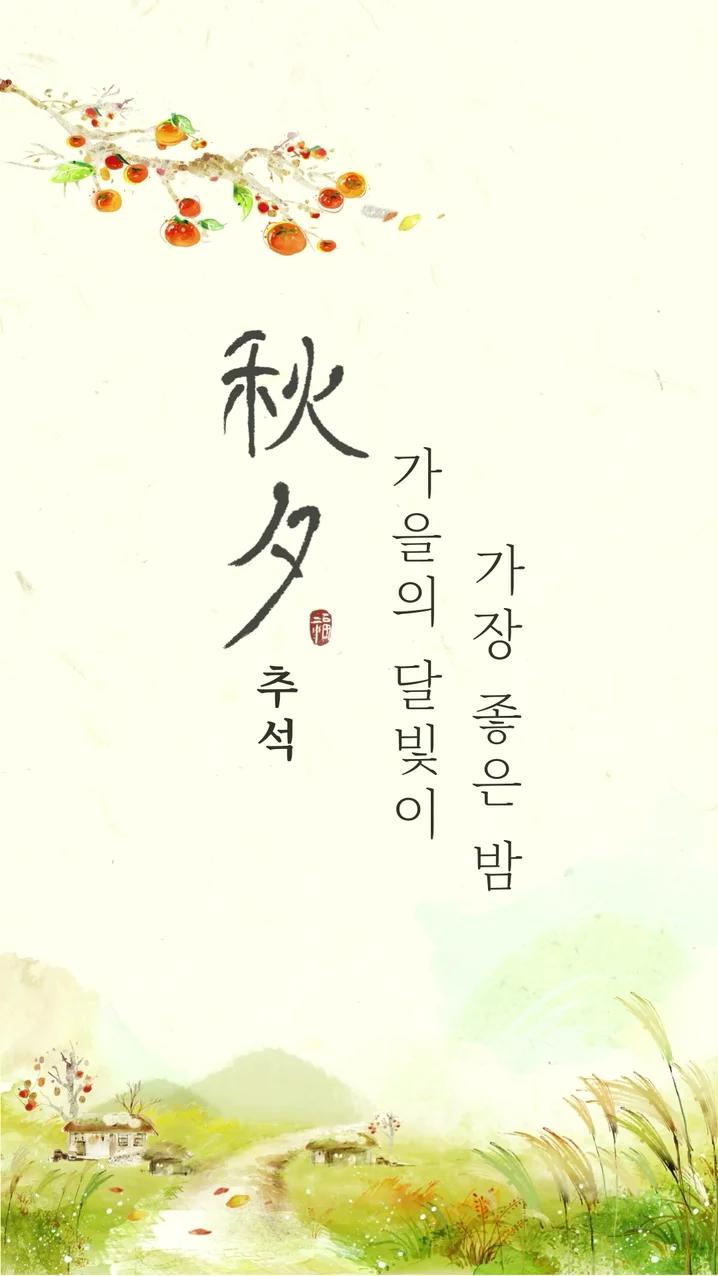 秋夕
福
추석
가을의 달빛이
가장 좋은 밤